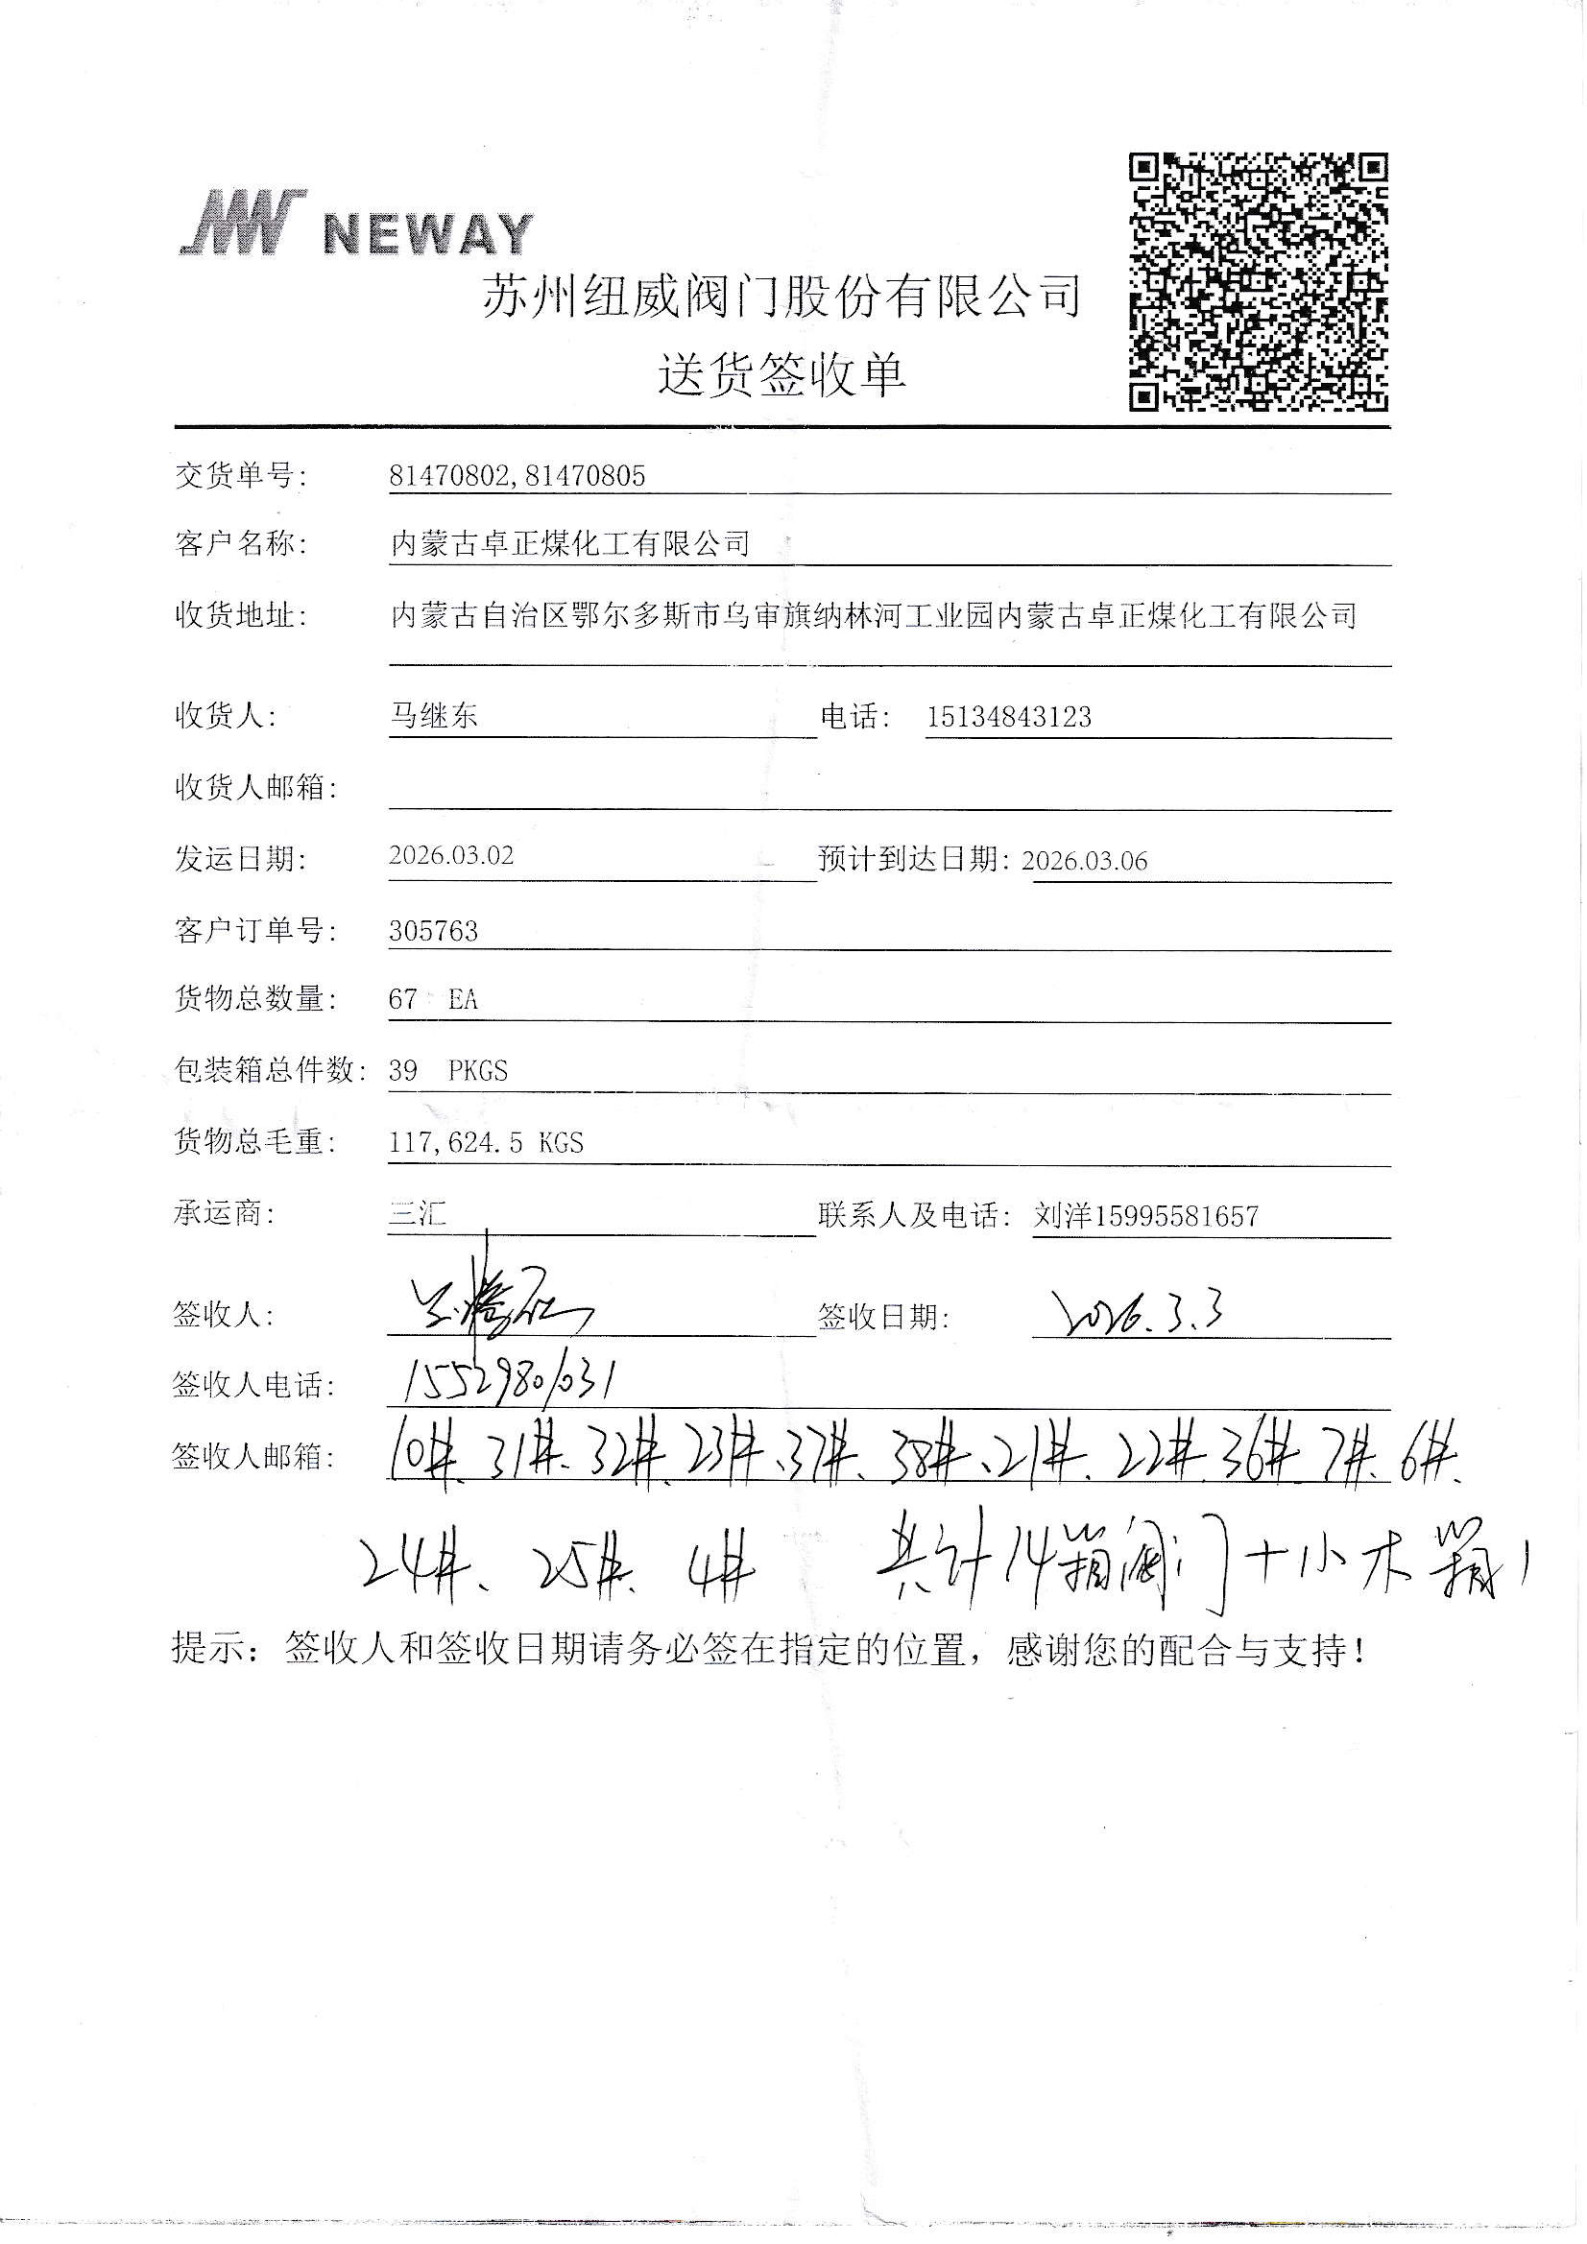 NEWAY
苏州纽威阀门股份有限公司
送货签收单
交货单号: 81470802,81470805
客户名称: 内蒙古卓正煤化工有限公司
收货地址: 内蒙古自治区鄂尔多斯市乌审旗纳林河工业园内蒙古卓正煤化工有限公司
收货人: 马继东 电话: 15134843123
收货人邮箱:
发运日期: 2026.03.02 预计到达日期: 2026.03.06
客户订单号: 305763
货物总数量: 67 EA
包装箱总件数: 39 PKGS
货物总毛重: 117,624.5 KGS
承运商: 三汇 联系人及电话: 刘洋15995581657
签收人: 签收日期: 2026.3.3
签收人电话: 15529801031
签收人邮箱: 10#、31#、32#、23#、37#、38#、21#、22#、36#、7#、6#、
24#、25#、4# 共计14箱阀门+小木箱1
提示: 签收人和签收日期请务必签在指定的位置, 感谢您的配合与支持!